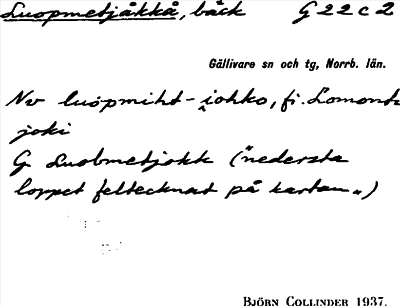 Luopmetjåkkå, bäck G 22 c 2
Gällivare sn och tg, Norrb. län.
Nv luopmiht-johko, fi. Lomont-
joki
G Luobmetjokk ("nedersta
loppet feltecknat på kartan")
BJÖRN COLLINDER 1937.